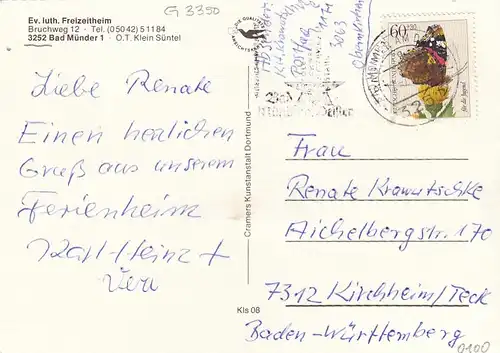 Ev. luth. Freizeitheim
Bruchweg 12 - Tel. (05042) 51184
3252 Bad Münder 1 - O.T. Klein Süntel
G 3350
Liebe Renate
Einen herzlichen
Gruß aus unserem
Ferienheim
Karl-Heinz +
Vera
Cramers Kunstanstalt Dortmund
Kls 08
Absender:
Postfach
3063
Obernkirchen
60
für die Jugend
3252
Frau
Renate Krawutschke
Aichelbergstr. 170
7312 Kirchheim/Teck
Baden-Württemberg
0100